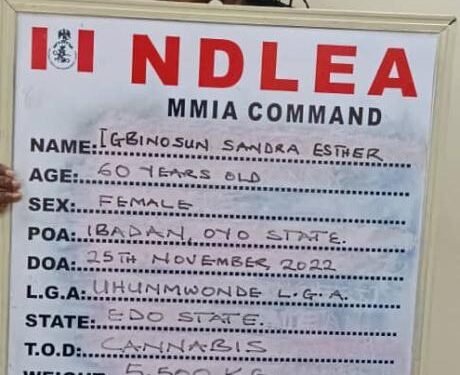 NDLEA
MMIA COMMAND
NAME: IGBINOSUN SANDRA ESTHER
AGE: 60 YEARS OLD
SEX: FEMALE
POA: IBADAN, OYO STATE.
DOA: 25TH NOVEMBER, 2022
L.G.A: UHUNMWONDE L.G.A.
STATE: EDO STATE.
T.O.D: CANNABIS
WEIGHT: 5.500 KG